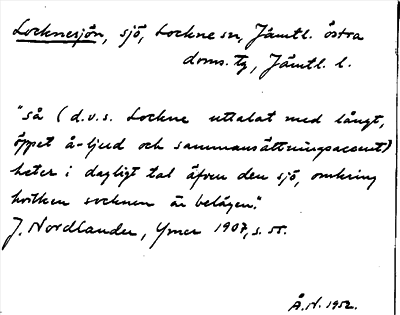 Locknesjön, sjö, Lockne sn, Jämtl. östra
doms. tg, Jämtl. l.
"så (d.v.s. Lockne uttalat med långt,
öppet å-ljud och sammansättningsaccent)
heter i dagligt tal äfven den sjö, omkring
hvilken socknen är belägen."
J. Nordlander, Ymer 1907, s.
Å.N. 1952.